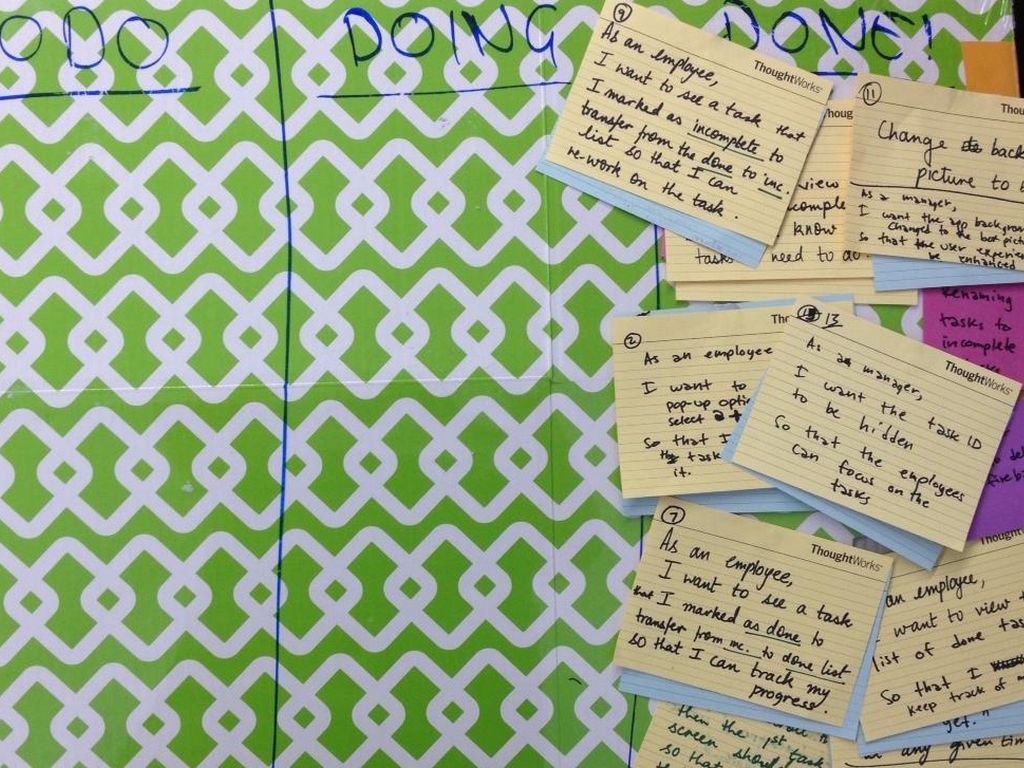 ODO
DOING
DONE!
9
ThoughtWorks
As an employee,
I want to see a task that
I marked as incomplete to
transfer from the done to inc.
list so that I can
re-work on the task.
view
comple
know
tasks need to do
11
ThoughtWorks
Change back
picture to
As a manager,
I want the app backgroun
changed to the bot pict
so that the user experien
be enhanced
renaming
tasks to
incomplete
2
As an employee
I want to
pop-up optio
select a t
So that I
task
it.
13
ThoughtWorks
As a manager,
I want the task ID
to be hidden
So that the employees
can focus on the
tasks
7
ThoughtWorks
As an employee,
I want to see a task
that I marked as done to
transfer from inc. to done list
so that I can track my
progress.
Thought
an employee,
want to view
list of done tas
So that I
keep track of
yet."
in any given tim
then the 1st task
screen shoul
so that